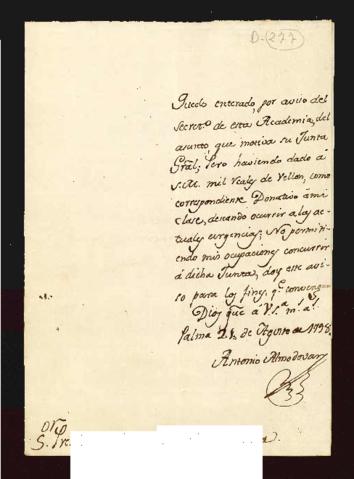 D-(277)
Quedo enterado, por aviso del
Secret.º de esta Academia, del
asunto que motiva su Junta
Gral; Pero haviendo dado á
S.M. mil reales de Vellon, como
correspondiente Donativo á mi
Clase, deseando ocurrir a las ac-
tuales urgencias; No permiti-
endo mis ocupaciones concurrir
á dicha Junta, doy este avi-
so para los fines, q.e convengan
Dios gue á V.S. m.s a.s
Palma 21, de Agosto de 1798.
Antonio Almodovar
or
S.